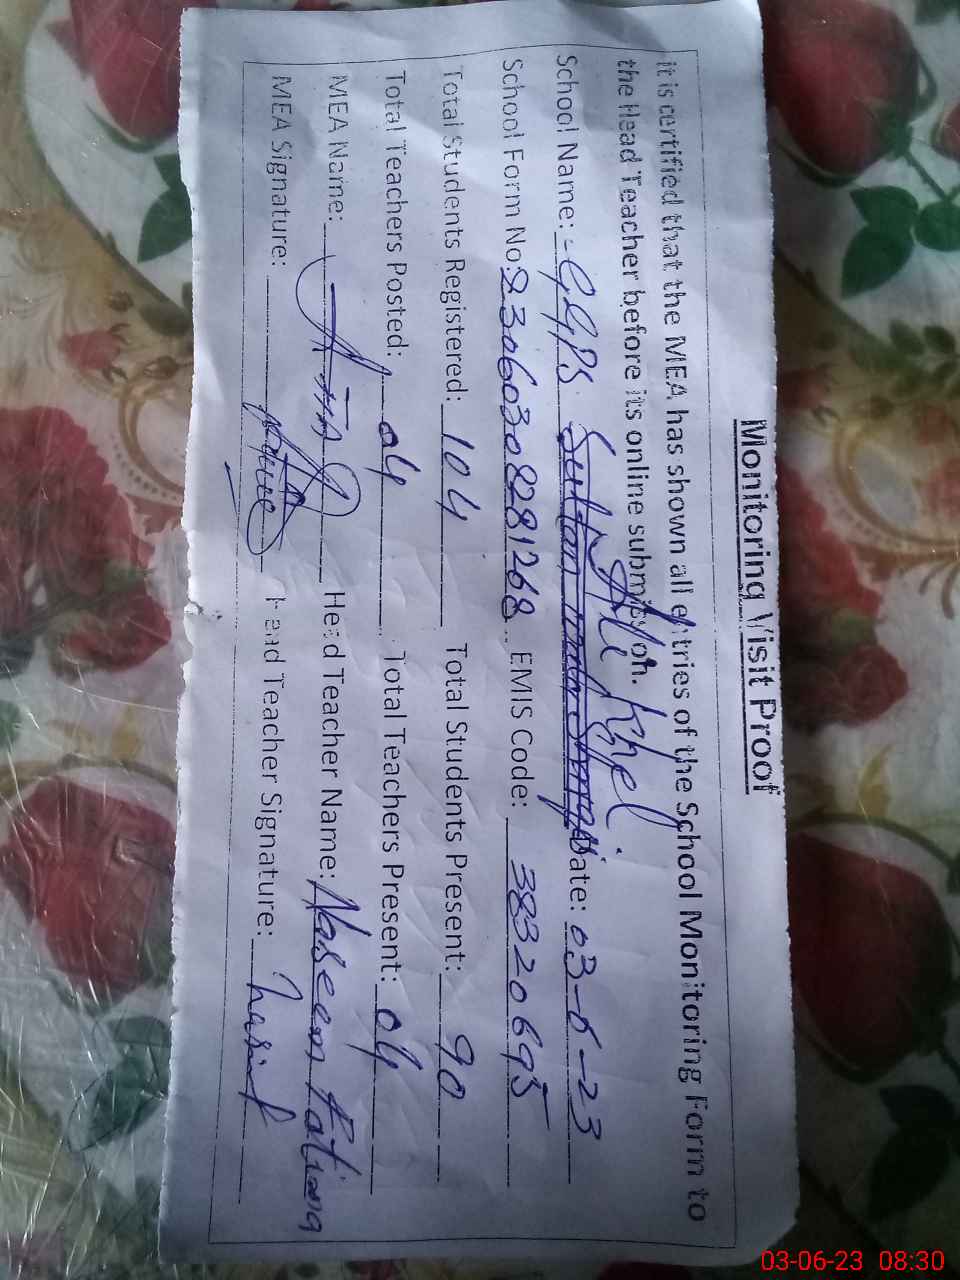 Monitoring Visit Proof
it is certified that the MEA has shown all entries of the School Monitoring Form to
the Head Teacher before its online submission.
Ali Khel
School Name: GGPS Date: 03-6-23
School Form No 23060308281268 EMIS Code: 38320695
Total Students Registered: 104 Total Students Present: 90
Total Teachers Posted: 04 Total Teachers Present: 04
MEA Name: Head Teacher Name: Naseem Fatima
MEA Signature: Head Teacher Signature:
03-06-23 08:30